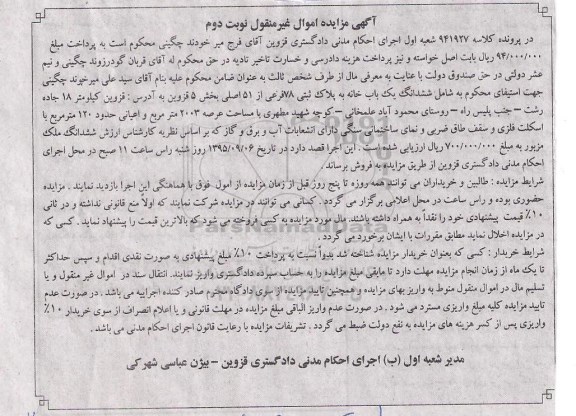 آگهی مزایده اموال غیرمنقول نوبت دوم
در پرونده کلاسه ۹۴۱۹۲۷ شعبه اول اجرای احکام مدنی دادگستری قزوین آقای فرج میر خوند چگینی محکوم است به پرداخت مبلغ
۹۴/۰۰۰/۰۰۰ ریال بابت اصل خواسته و نیز پرداخت هزینه دادرسی و خسارت تاخیر تادیه در حق محکوم له آقای قربان گودرزوند چگینی و نیم
عشر دولتی در حق صندوق دولت با عنایت به معرفی مال از طرف شخص ثالث به عنوان ضامن محکوم علیه بنام آقای سید علی میرخوند چگینی
جهت استیفای محکوم به شامل ششدانگ یک باب خانه به پلاک ثبتی ۷۸فرعی از ۵۱ اصلی بخش ۵ قزوین به آدرس : قزوین کیلومتر ۱۸ جاده
رشت – جنب پلیس راه – روستای محمود آباد علمخانی – کوچه شهید مطهری با مساحت عرصه ۲۰۰۳ متر مربع و اعیانی حدود ۱۲۰ مترمربع با
اسکلت فلزی و سقف طاق ضربی و نمای ساختمانی سنگی دارای انشعابات آب و برق و گاز که بر اساس نظریه کارشناس ارزش ششدانگ ملک
مزبور به مبلغ ۷۰۰/۰۰۰/۰۰۰ ریال ارزیابی شده است . این اجرا قصد دارد در تاریخ ۱۳۹۵/۰۹/۰۶ روز شنبه راس ساعت ۱۱ صبح در محل اجرای
احکام مدنی دادگستری قزوین از طریق مزایده به فروش برساند .
شرایط مزایده : طالبین و خریداران می توانند همه روزه تا پنج روز قبل از زمان مزایده از اموال فوق با هماهنگی این اجرا بازدید نمایند . مزایده
حضوری بوده و راس ساعت در محل اعلامی برگزار می گردد . کسانی می توانند در مزایده شرکت نمایند که اولا منع قانونی نداشته و در ثانی
۱۰٪ قیمت پیشنهادی خود را نقداً به همراه داشته باشند. مال مورد مزایده به کسی فروخته می شود که بالاترین قیمت را پیشنهاد نماید . کسی که
در مزایده اخلال نماید مطابق مقررات با ایشان برخورد می گردد .
شرایط خریدار : کسی که بعنوان خریدار مزایده شناخته شد بدواً نسبت به پرداخت ۱۰٪ مبلغ پیشنهادی به صورت نقدی اقدام و سپس حداکثر
تا یک ماه از زمان انجام مزایده مهلت دارد تا مابقی مبلغ مزایده را به حساب سپرده دادگستری واریز نمایند. انتقال سند در اموال غیر منقول و یا
تسلیم مال در اموال منقول منوط به واریز بهای مزایده و همچنین تایید مزایده از سوی دادگاه محترم صادر کننده اجراییه می باشد . در صورت عدم
تایید مزایده کلیه مبلغ واریزی مسترد می شود . در صورت عدم واریز الباقی مبلغ مزایده در مهلت قانونی و یا اعلام انصراف از سوی خریدار ۱۰٪
واریزی پس از کسر هزینه های مزایده به نفع دولت ضبط می گردد . تشریفات مزایده با رعایت قانون اجرای احکام مدنی می باشد .
مدیر شعبه اول (ب) اجرای احکام مدنی دادگستری قزوین – بیژن عباسی شهرکی
ParsNamadData